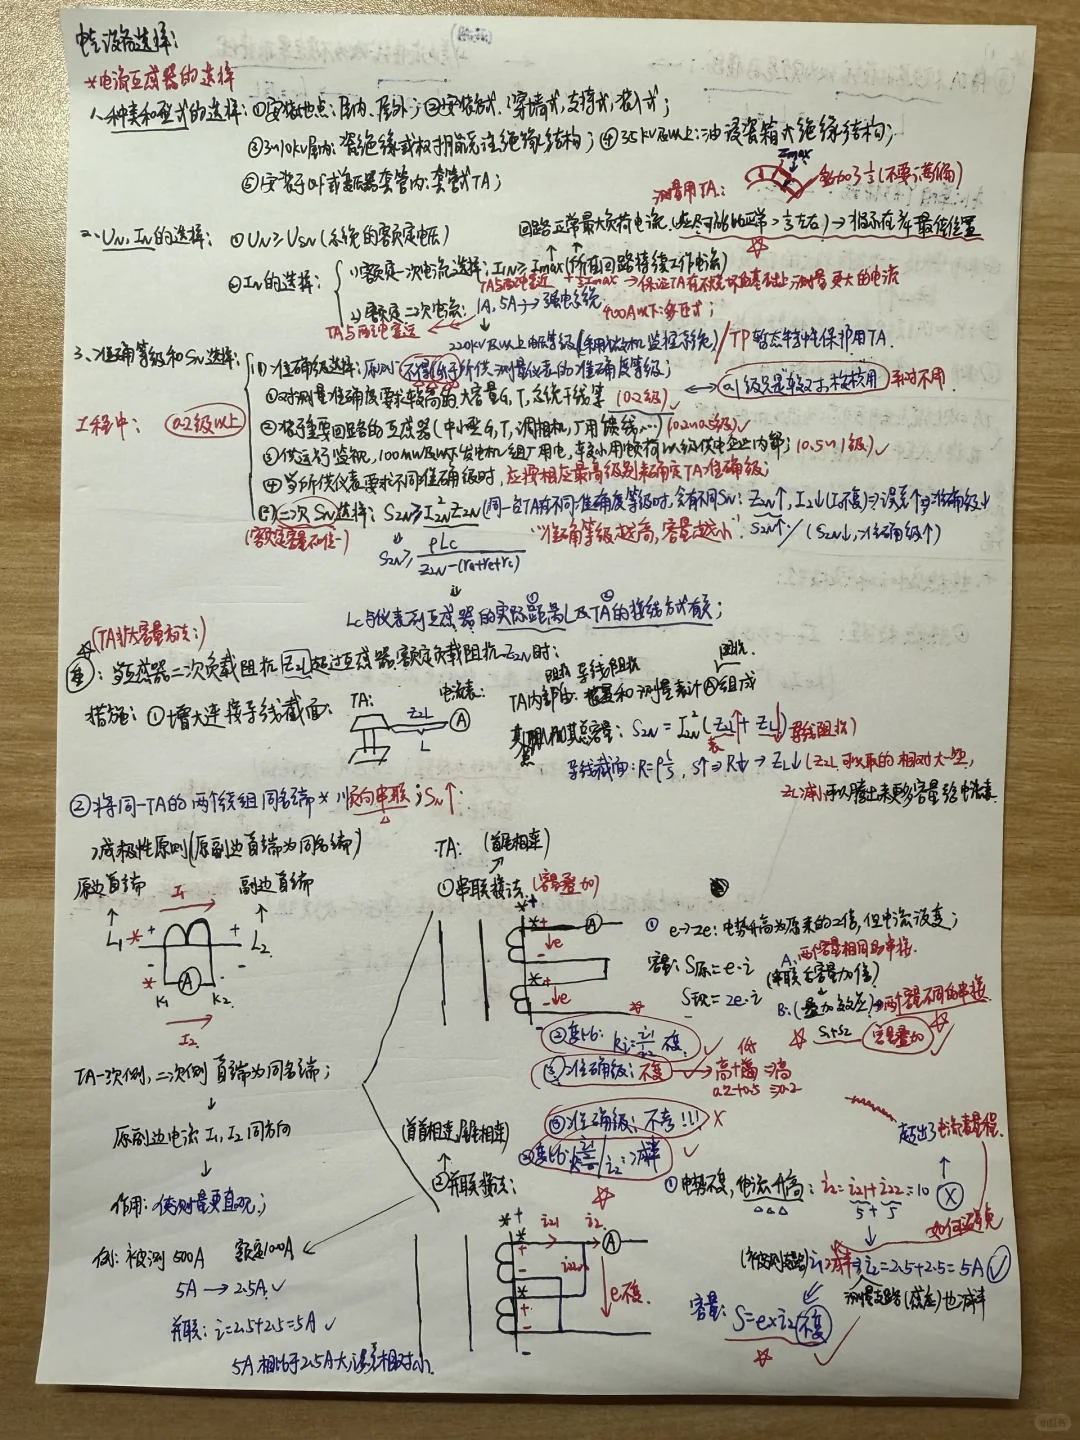 电气设备选择：
*电流互感器的选择
一、种类和型式的选择：①安装地点：屋内、屋外；②安装方式：穿墙式，支持式，装入式；
③3~10kV屋内：瓷绝缘或树脂浇注绝缘结构；④35kV及以上：油浸瓷箱式绝缘结构；
⑤安装于QF或变压器套管内：套管式TA；
Zmax
测量用TA：
(不要满偏)
二、UN、IN的选择：①UN≥USN(系统的额定电压)
回路正常最大负荷电流
→指示在最佳位置
②IN的选择：
1)额定一次电流选择：I1N≥Imax(所在回路持续工作电流)
→保证TA在不烧坏的基础上测量更大的电流
2)额定二次电流：1A，5A→强电系统
400A以下：多匝式；
TA与测电量远
220kV及以上电压等级(采用微机监控系统)/TP暂态特性保护用TA
3、准确等级和SN选择：
(1)准确级选择：原则：不得低于所供测量仪表的准确度等级；
①对测量准确度要求较高的大容量G，T，系统干线等(0.2级)
0.1级只是校对、校核用
工程中：0.2级以上
②将重要回路的互感器(中小型G，T，调相机，厂用馈线，…)(0.2~0.5级)√
③供运行监视，100MW及以下发电机组厂用电，较小用电负荷以及供电企业内部；(0.5~1级)√
④当所供仪表要求不同准确级时，应按相应最高级别来确定TA准确级；
(2)二次SN选择：S2N≥I²2N Z2N(同一台TA在不同准确度等级时，会有不同SN：Z2N↑，I2↓(I1不变)⇒误差↑⇒准确级↓
(额定容量不唯一)
"准确等级越高，容量越小"
S2N↑/(S2N↓，准确级↑)
S2N≥ρLc/Z2N-(ra+re+rc)
Lc与仪表到互感器的实际距离L及TA的接线方式有关；
☆(TA扩大容量方法：)
注：当互感器二次负载阻抗Z2L超过互感器额定负载阻抗Z2N时：
措施：①增大连接导线截面：
TA：
电流表：
Z2L
L
A
导线阻抗
组成
S2N=I²2N(Z2L+ZL)
导线阻抗)
导线截面：R=ρL/S，S↑⇒R↓→ZL↓(Z2L可以取的相对大一些，
ZL减小可以腾出来更多容量给电流表
②将同一TA的两个绕组同名端*顺向串联；SN↑
减极性原则(原副边首端为同名端)
TA：(首尾相连)
原边首端
I1
副边首端
①串联接法(容量叠加)
L1
L2
A
K1
K2
I2
①e→2e：电势升高为原来的2倍，但电流没变；
容量：S原=e·i
A：两个容量相同的串接
(串联后容量加倍)
S现=2e·i
B：(叠加效应)→两个容量不同的串接
S1+S2
容量叠加
②变比：Ki=i1/i2不变√
③准确级：不变√→
高+低⇒高
0.2+0.5⇒0.2
TA一次侧，二次侧首端为同名端；
↓
原副边电流I1、I2同方向
↓
作用：使测量更直观；
③准确级：不变!!!×
(首首相连，尾尾相连)
②并联接法：
②变比
减半√
超出了电流表量程
①电势不变，电流升高：i2=i21+i22=10
5+5
如何避免
例：被测500A
额定1000A
5A→2.5A√
并联：i=2.5+2.5=5A√
5A相比于2.5A大，误差相对小
i21
i2
i22
A
e不变
(被测支路)i1减半⇒i2=2.5+2.5=5A√
也减半
容量：S=e×i2不变